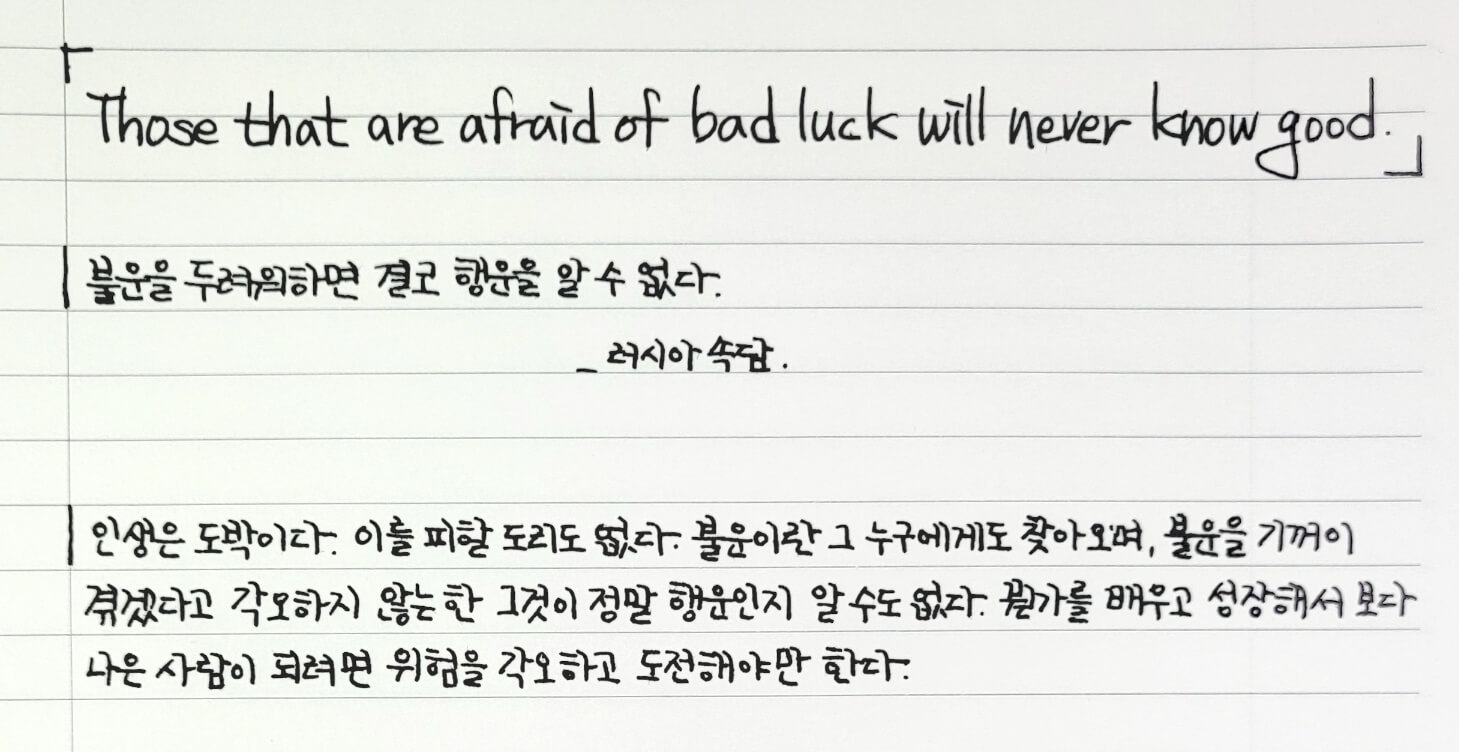 「Those that are afraid of bad luck will never know good.」
불운을 두려워하면 결코 행운을 알 수 없다.
_ 러시아 속담.
인생은 도박이다. 이를 피할 도리도 없다. 불운이란 그 누구에게도 찾아오며, 불운을 기꺼이
겪겠다고 각오하지 않는 한 그것이 정말 행운인지 알 수도 없다. 뭔가를 배우고 성장해서 보다
나은 사람이 되려면 위험을 각오하고 도전해야만 한다.